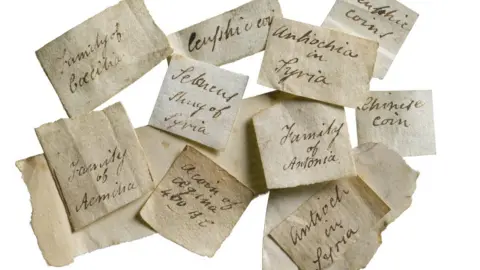 Family of
Cæcilia
Cuphic coin
Antiochia
in
Syria
Cuphic
coins
Selecus
King of
Syria
Chinese
coin
Family
of
Aemilia
a coin of
Aegina
400 BC
Family
of
Antonia
Antioch
in
Syria